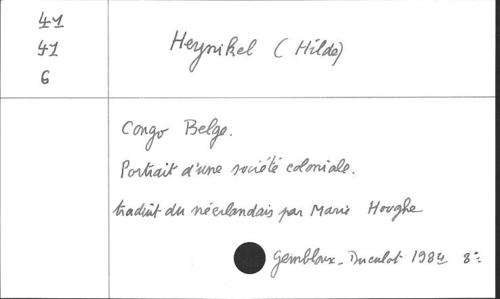 41
41
6
Heynikel (Hilde)
Congo Belge.
Portrait d'une société coloniale.
traduit du néerlandais par Marie Hooghe
Gembloux - Duculot 1984 8°: